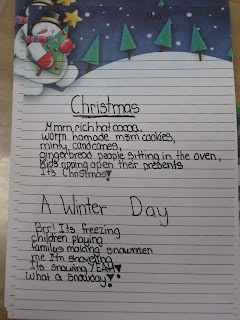 Christmas
Mmm, rich hot cocoa,
warm homade m&m cookies,
minty candcanes,
gingerbread people sitting in the oven,
kids ripping open ther presents
Its Christmas!
A Winter Day
Brr! Its freezing
children playing
familys making snowmen
me I'm shoveling
Its snowing
What a snowday!